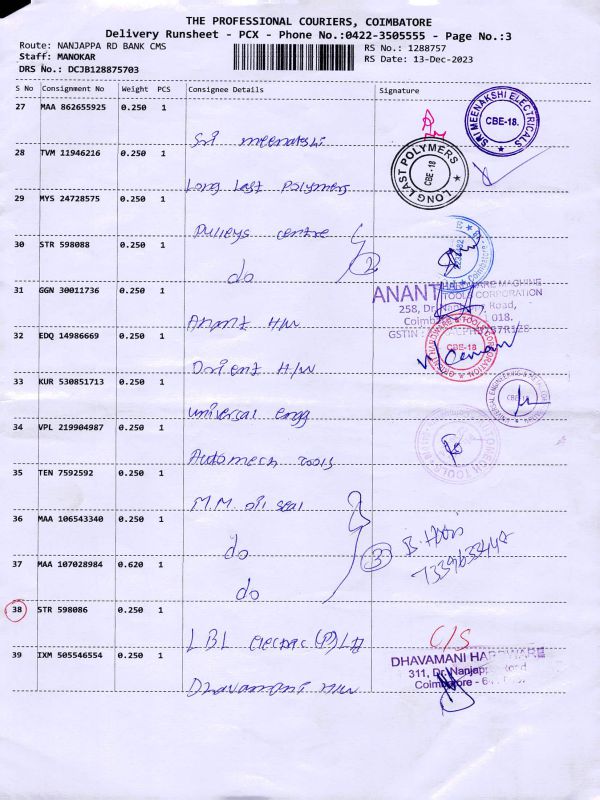 THE PROFESSIONAL COURIERS, COIMBATORE
Delivery Runsheet - PCX - Phone No.:0422-3505555 - Page No.:3
Route: NANJAPPA RD BANK CMS RS No.: 1288757
Staff: MANOKAR RS Date: 13-Dec-2023
DRS No.: DCJB128875703
S No Consignment No Weight PCS Consignee Details Signature
27 MAA 862655925 0.250 1
Sri meenatshi
SRI MEENAKSHI ELECTRICALS
CBE-18.
28 TVM 11946216 0.250 1
Long Last Polymers
LONG LAST POLYMERS
CBE-18
29 MYS 24728575 0.250 1
Pulleys centre
30 STR 598088 0.250 1
do
2
31 GGN 30011736 0.250 1
Anant H/W
ANANT HARDWARE MACHINE
TOOLS CORPORATION
258, Dr. Road,
018.
32 EDQ 14986669 0.250 1
Orient H/W
CBE-18
33 KUR 530851713 0.250 1
universal engg
34 VPL 219904987 0.250 1
Automech tools
35 TEN 7592592 0.250 1
M.M. oil seal
36 MAA 106543340 0.250 1
do
3
37 MAA 107028984 0.620 1
do
38 STR 598086 0.250 1
LBL (P) Ltd
C/S
39 IXM 505546554 0.250 1
Dhavamani H/W
DHAVAMANI HARDWARE
311, Dr. Nanjappa Road
Coimbatore - 6